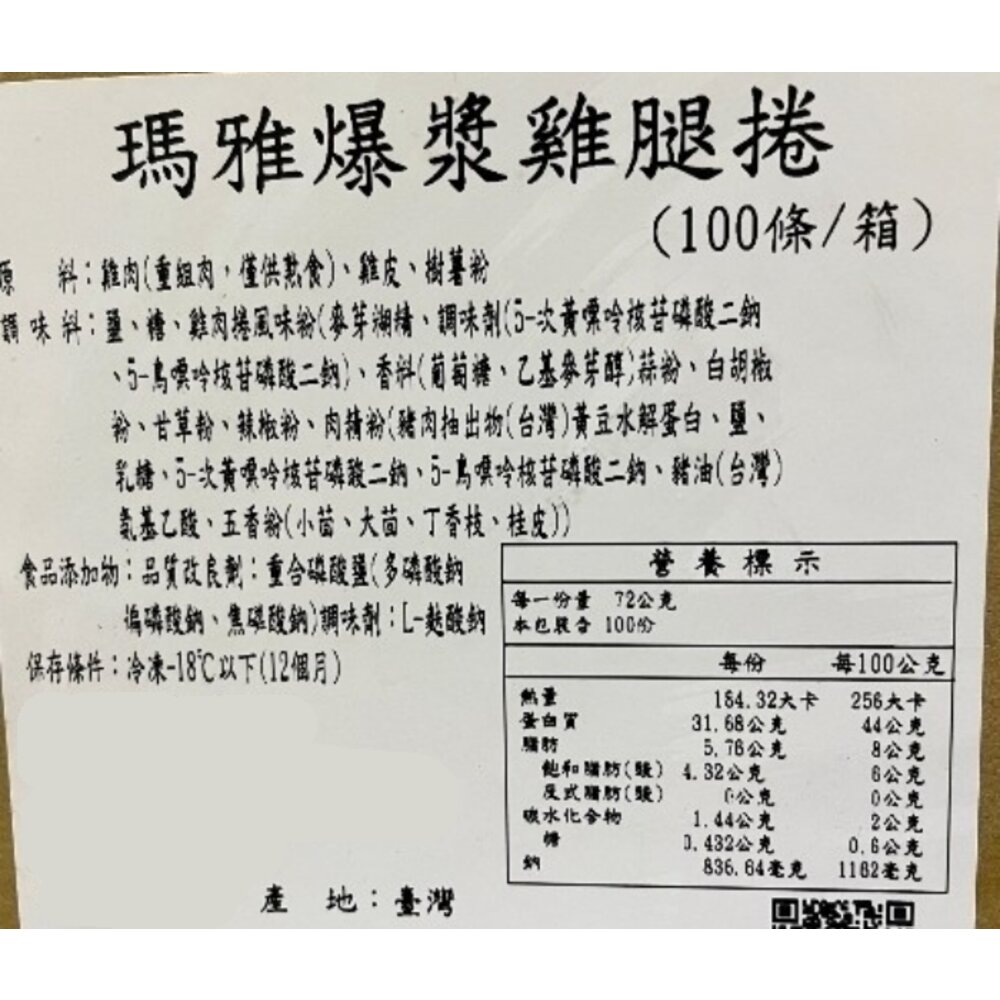 瑪雅爆漿雞腿捲
(100條/箱)
原　料：雞肉(重組肉，僅供熟食)、雞皮、樹薯粉
調味料：鹽、糖、雞肉捲風味粉(麥芽糊精、調味劑(5-次黃嘌呤核苷磷酸二鈉
、5-鳥嘌呤核苷磷酸二鈉)、香料(葡萄糖、乙基麥芽醇)蒜粉、白胡椒
粉、甘草粉、辣椒粉、肉精粉(豬肉抽出物(台灣)黃豆水解蛋白、鹽、
乳糖、5-次黃嘌呤核苷磷酸二鈉、5-鳥嘌呤核苷磷酸二鈉、豬油(台灣)
氨基乙酸、五香粉(小茴、大茴、丁香枝、桂皮))
食品添加物：品質改良劑：重合磷酸鹽(多磷酸鈉
偏磷酸鈉、焦磷酸鈉)調味劑：L-麩酸鈉
保存條件：冷凍-18℃以下(12個月)
營養標示
每一份量 72公克
本包裝含 100份
每份 每100公克
熱量 184.32大卡 256大卡
蛋白質 31.68公克 44公克
脂肪 5.76公克 8公克
飽和脂肪 4.32公克 6公克
反式脂肪 0公克 0公克
碳水化合物 1.44公克 2公克
糖 0.432公克 0.6公克
鈉 836.64毫克 1162毫克
產　地：臺灣